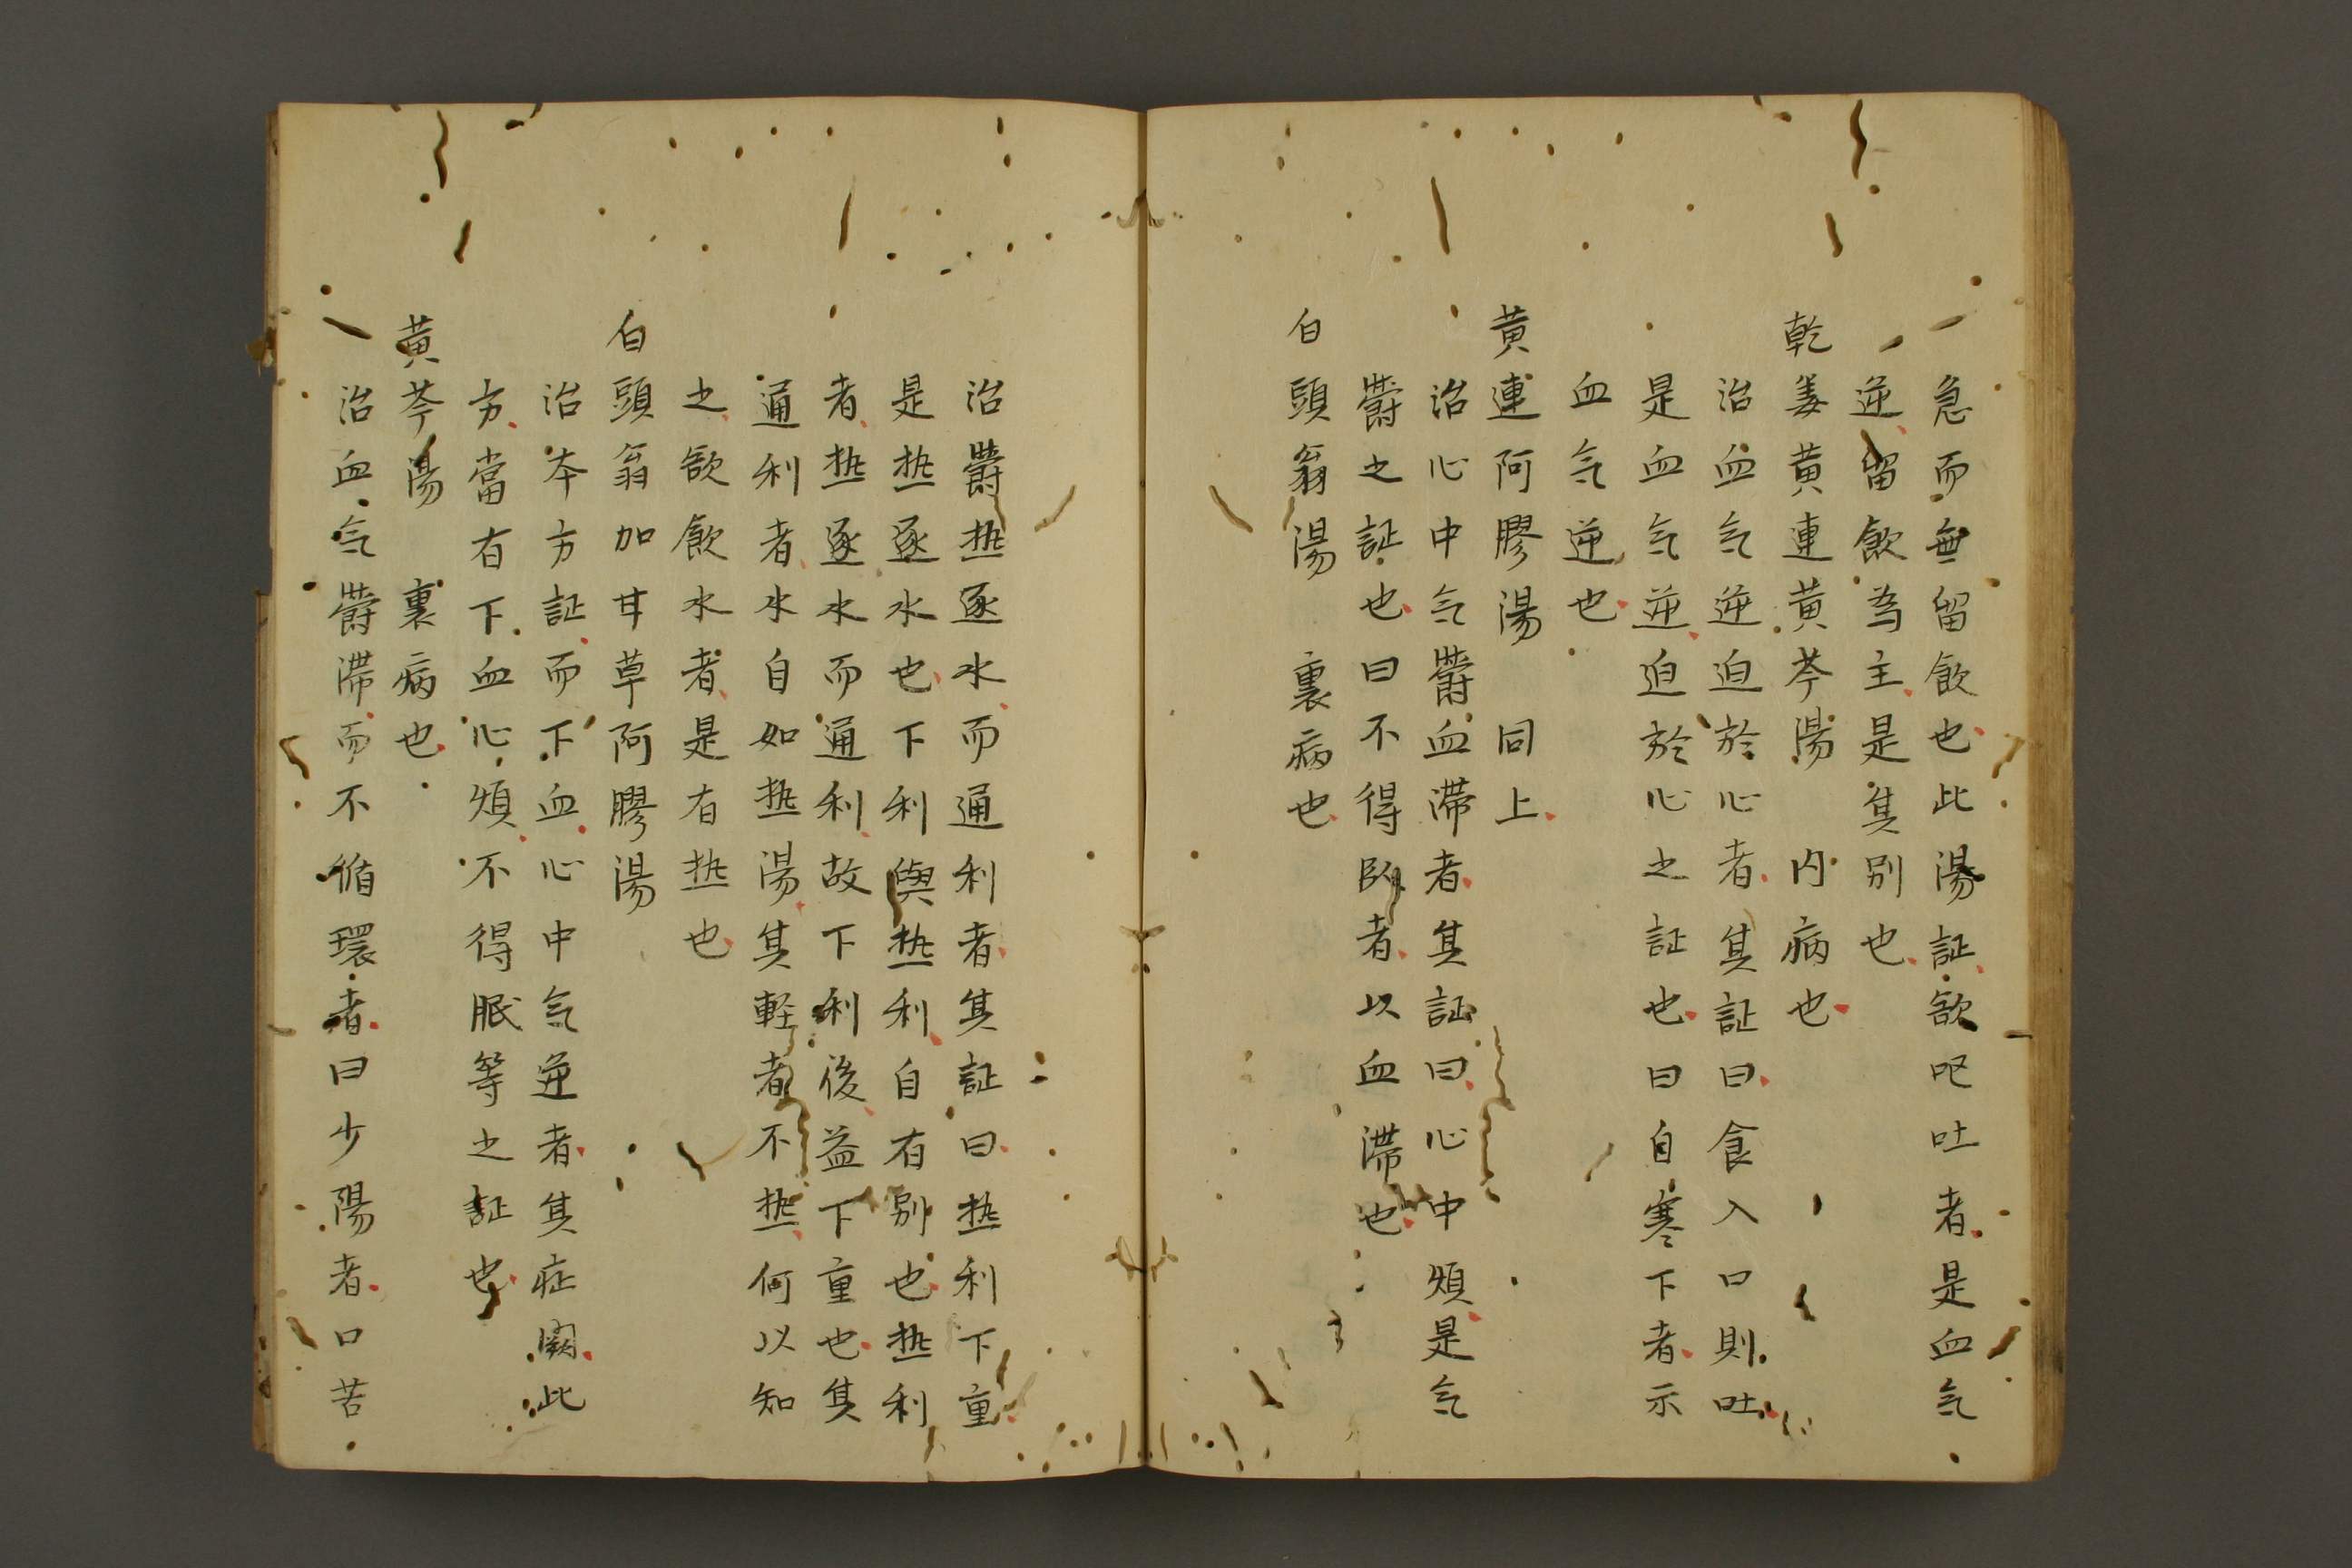 急而無留飲也此湯証欲呕吐者是血气
逆留飲為主是其別也
乾姜黄連黄芩湯　内病也
治血气逆迫於心者其証曰食入口則吐
是血气逆迫於心之証也曰自寒下者示
血气逆也
黄連阿膠湯　同上
治心中气欝血滞者其証曰心中煩是气
欝之証也曰不得臥者以血滞也
白頭翁湯　裏病也
治欝热逐水而通利者其証曰热利下重
是热逐水也下利與热利自有別也热利
者热逐水而通利故下利後益下重也其
通利者水自如热湯其軽者不热何以知
之欲飲水者是有热也
白頭翁加甘草阿膠湯
治本方証而下血心中气逆者其症闕此
方當有下血心煩不得眠等之証也
黄芩湯　裏病也
治血气欝滞而不循環者曰少陽者口苦